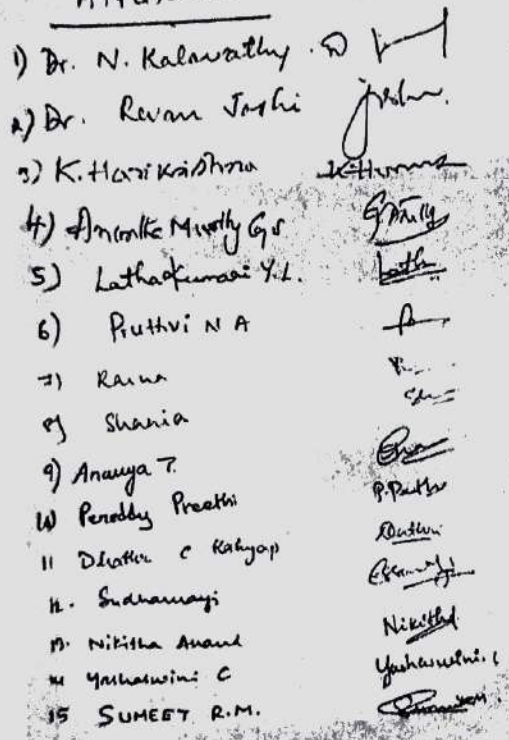 1) Dr. N. Kalavathy
2) Dr. Revan Joshi Joshi
3) K. Hari Krishna
4) Anantha Murthy G S
5) Lathakumari Y.L. Latha
6) Pruthvi N A
7) Raina
8) Shania
9) Ananya T.
10 Preethi P.Preethi
11 Dhathri C Kahyap
12. Sudhamayi
13. Nikitha Anand Nikitha
14 Yashaswini C Yashaswini.C
15 SUMEET R.M.